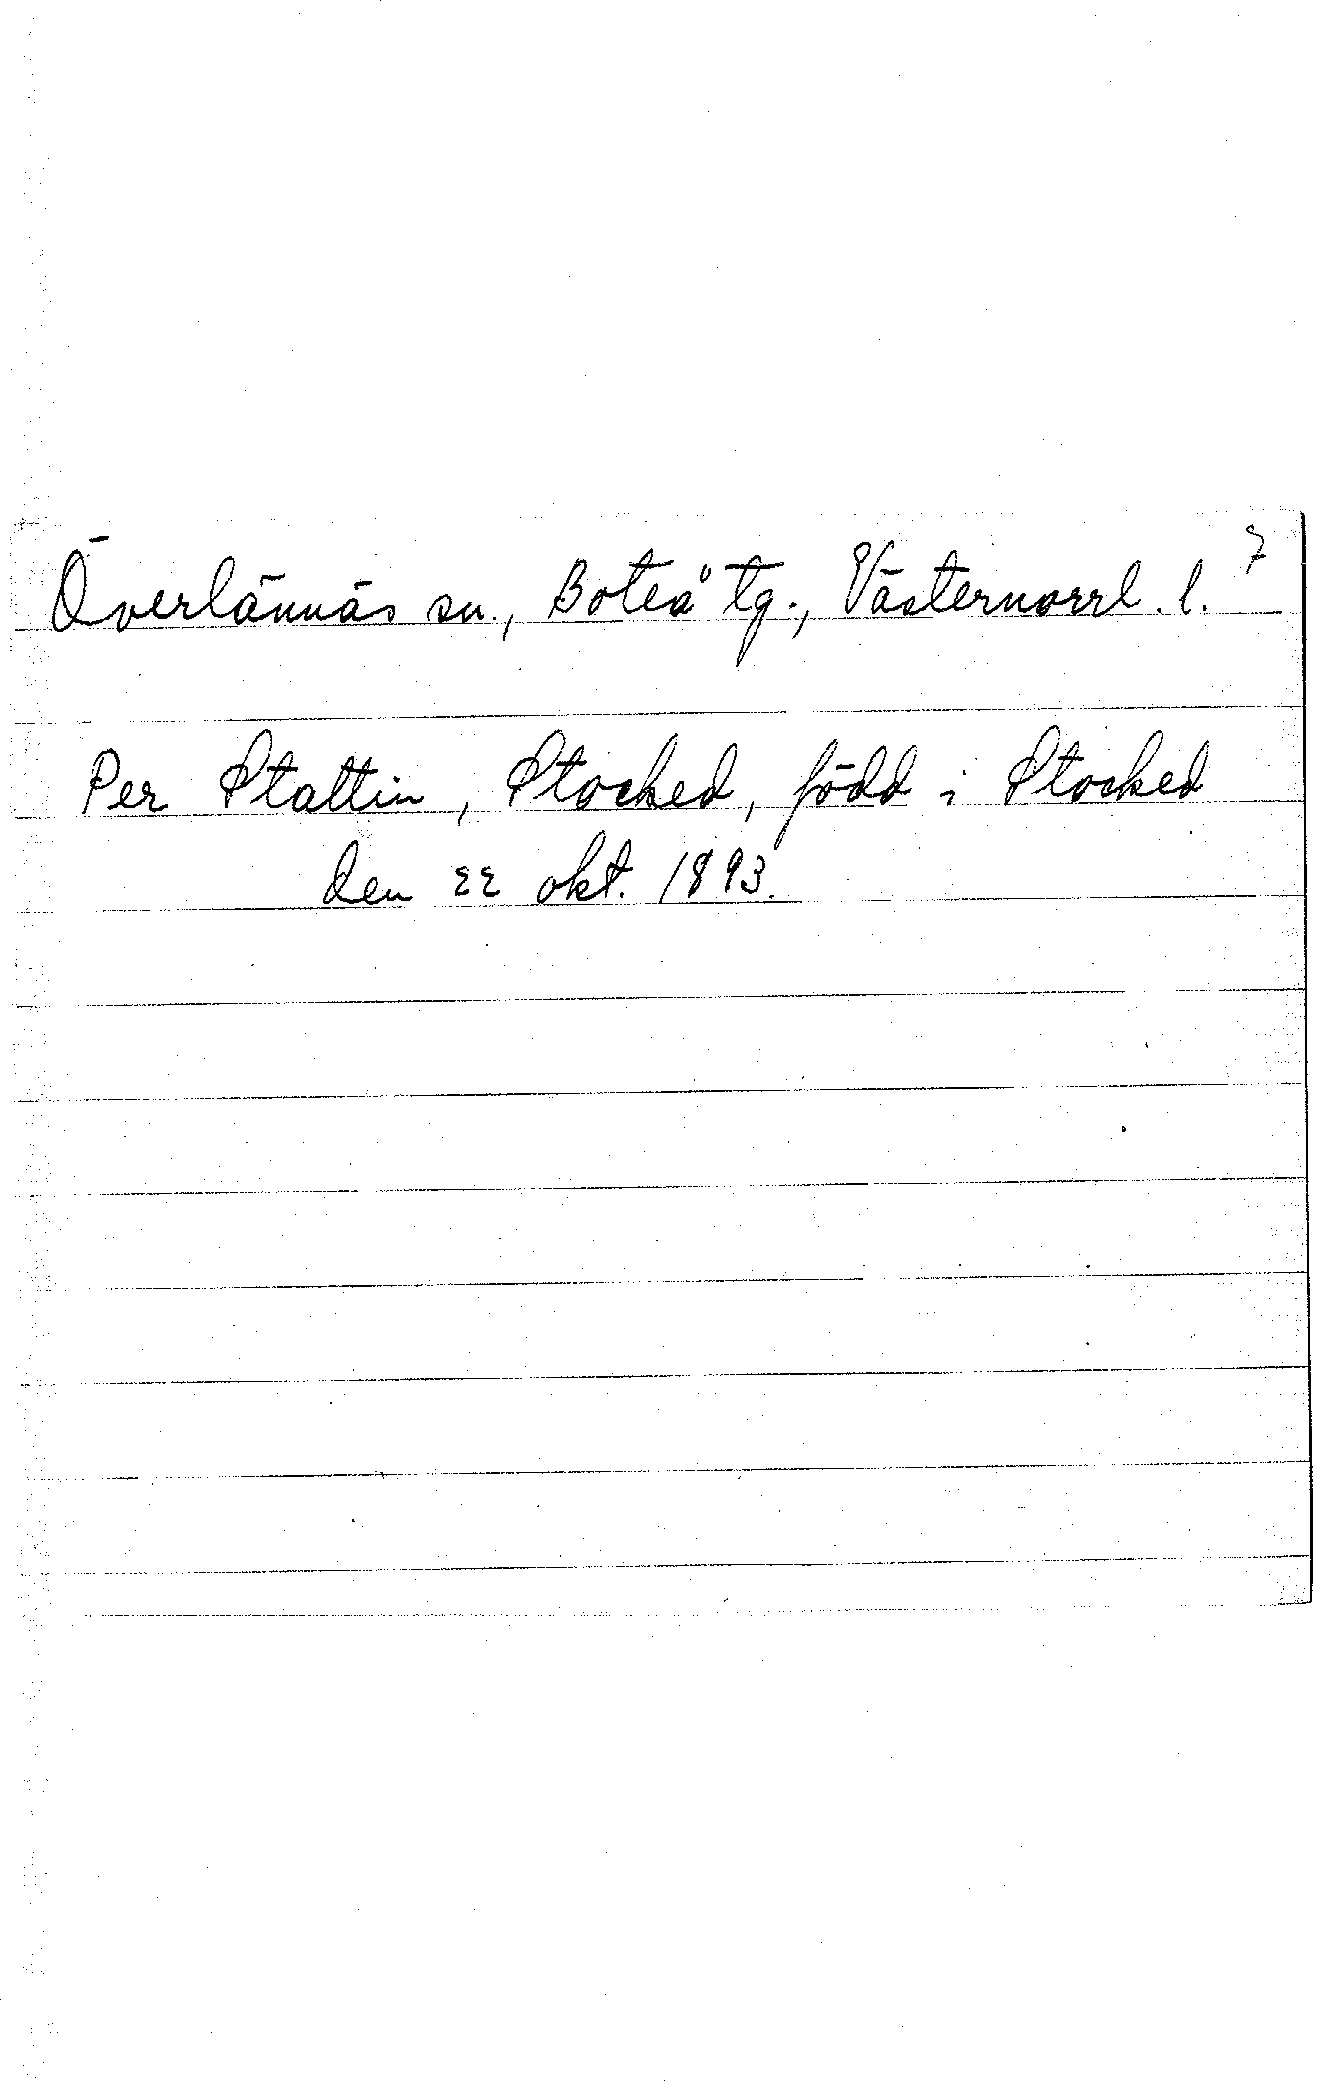 7
Överlännäs sn., Boteå tg., Västernorrl. l.
Per Stattin, Stocked, född i Stocked
den 22 okt. 1893.